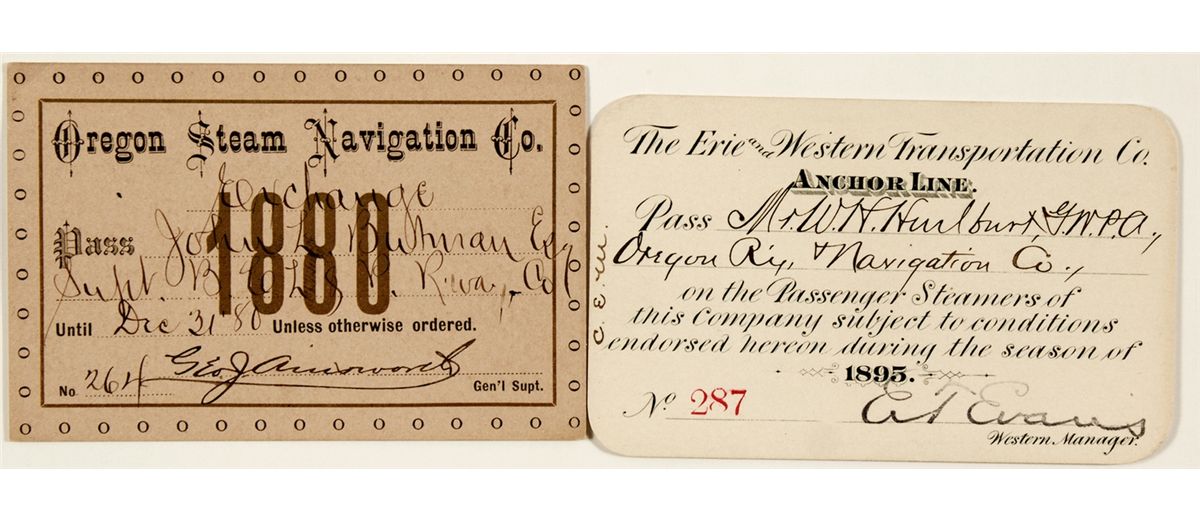 Oregon Steam Navigation Co.
Exchange
1880
Pass John L. Butman Esq
Supt. B. & L. S. R.way, Co
Until Dec 31 80 Unless otherwise ordered.
No 264 Geo. J. Ainsworth
Gen'l Supt.
The Erie and Western Transportation Co.
ANCHOR LINE.
Pass Mr. W. H. Hurlburt, G.W.P.A.,
Oregon Ry, & Navigation Co.,
on the Passenger Steamers of
this Company subject to conditions
endorsed hereon during the season of
1895.
No 287 E T Evans
Western Manager.